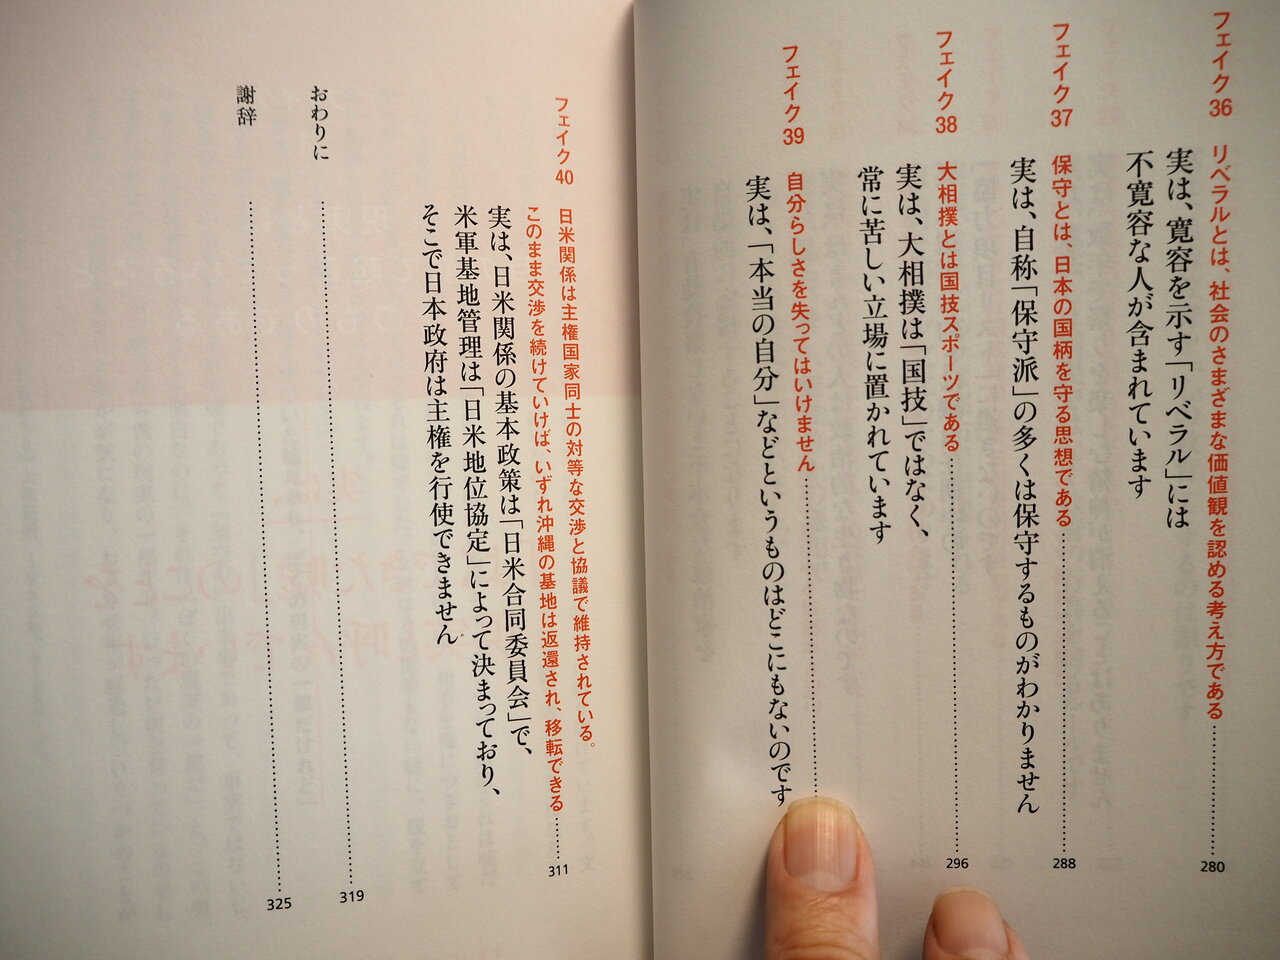 フェイク36 リベラルとは、社会のさまざまな価値観を認める考え方である 280
実は、寛容を示す「リベラル」には
不寛容な人が含まれています
フェイク37 保守とは、日本の国柄を守る思想である 288
実は、自称「保守派」の多くは保守するものがわかりません
フェイク38 大相撲とは国技スポーツである 296
実は、大相撲は「国技」ではなく、
常に苦しい立場に置かれています
フェイク39 自分らしさを失ってはいけません
実は、「本当の自分」などというものはどこにもないのです
フェイク40 日米関係は主権国家同士の対等な交渉と協議で維持されている。
このまま交渉を続けていけば、いずれ沖縄の基地は返還され、移転できる 311
実は、日米関係の基本政策は「日米合同委員会」で、
米軍基地管理は「日米地位協定」によって決まっており、
そこで日本政府は主権を行使できません
おわりに 319
謝辞 325